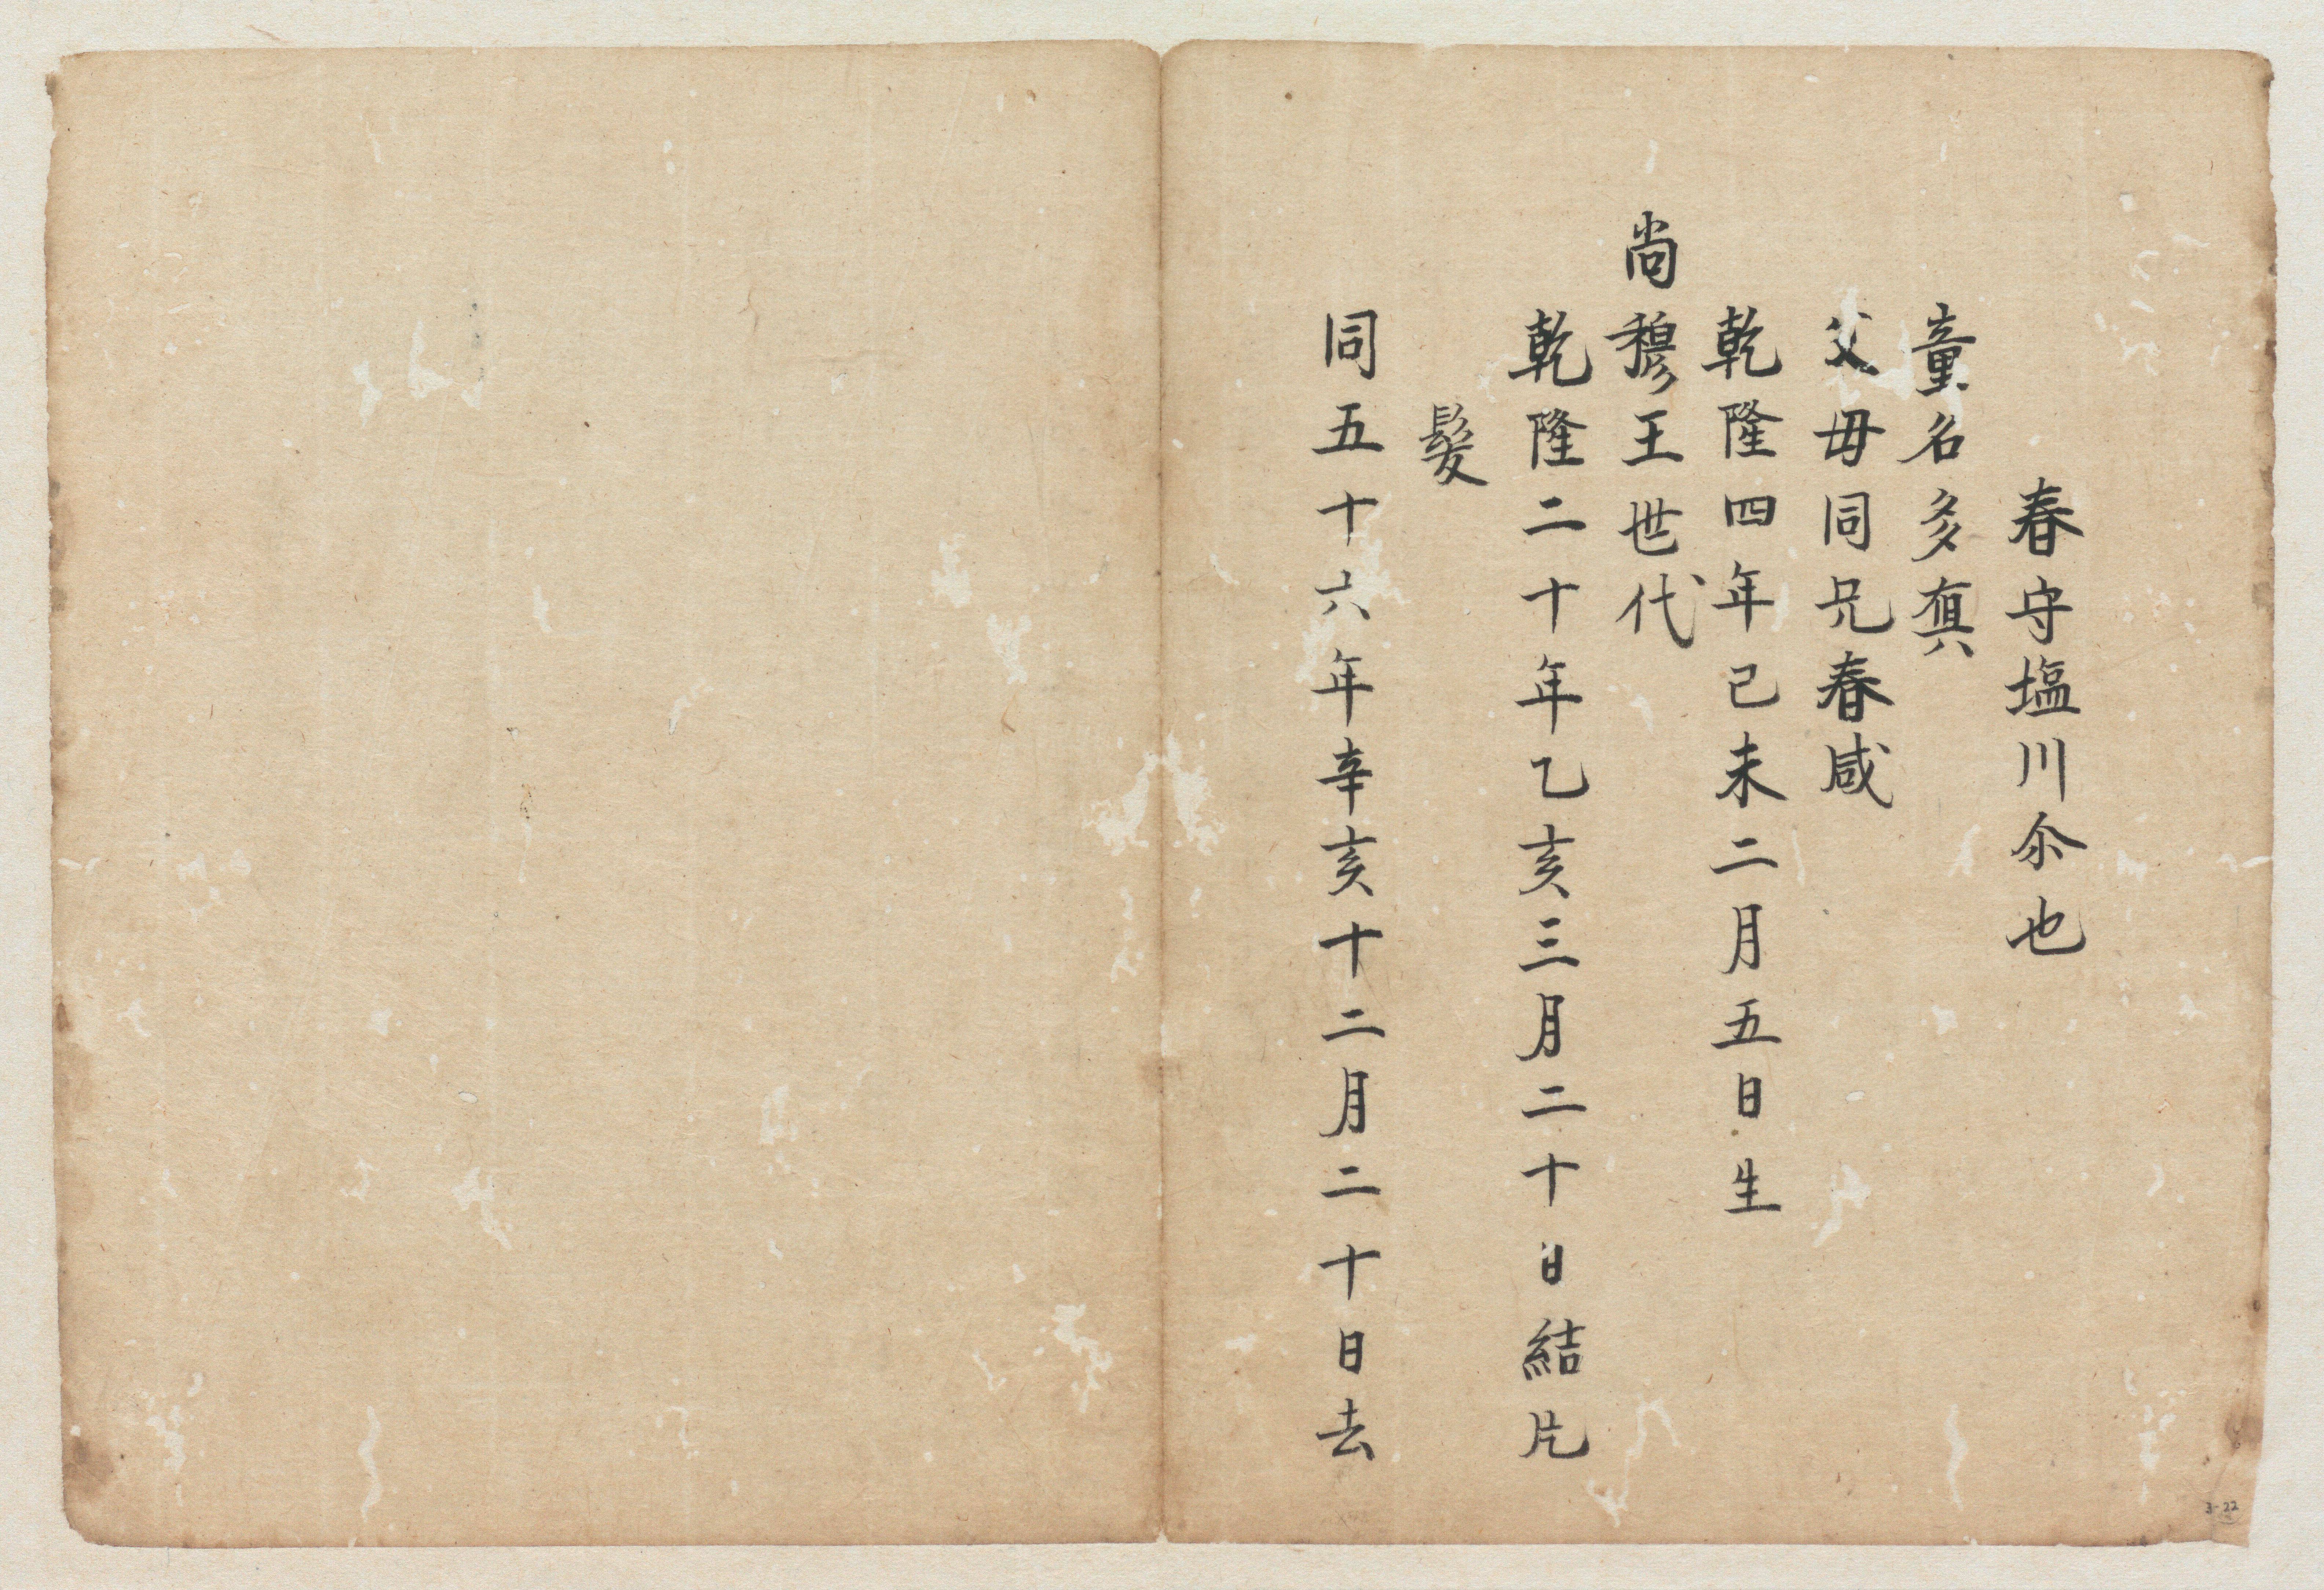 春守塩川尒也
童名多真
父母同兄春咸
乾隆四年己未二月五日生
尚穆王世代
乾隆二十年乙亥三月二十日結片
髪
同五十六年辛亥十二月二十日去
3-22